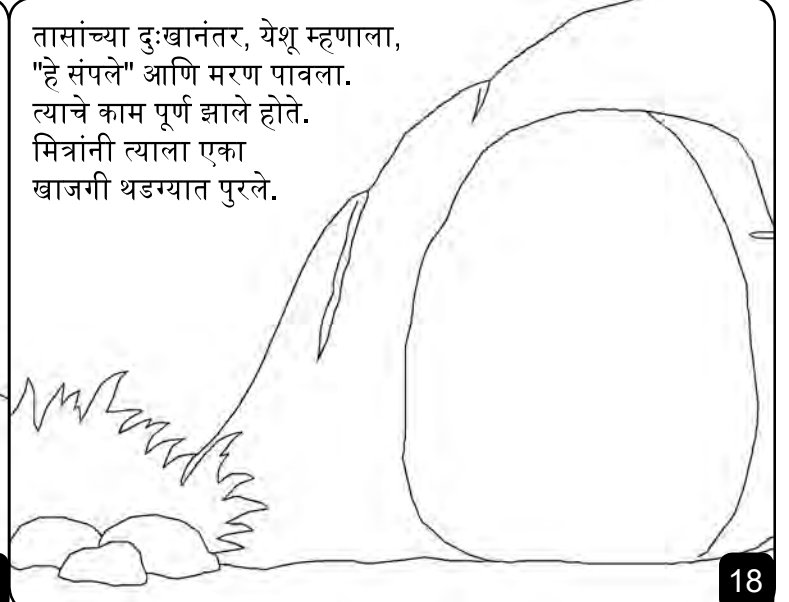 तासांच्या दुःखानंतर, येशू म्हणाला,
"हे संपले" आणि मरण पावला.
त्याचे काम पूर्ण झाले होते.
मित्रांनी त्याला एका
खाजगी थडग्यात पुरले.
18